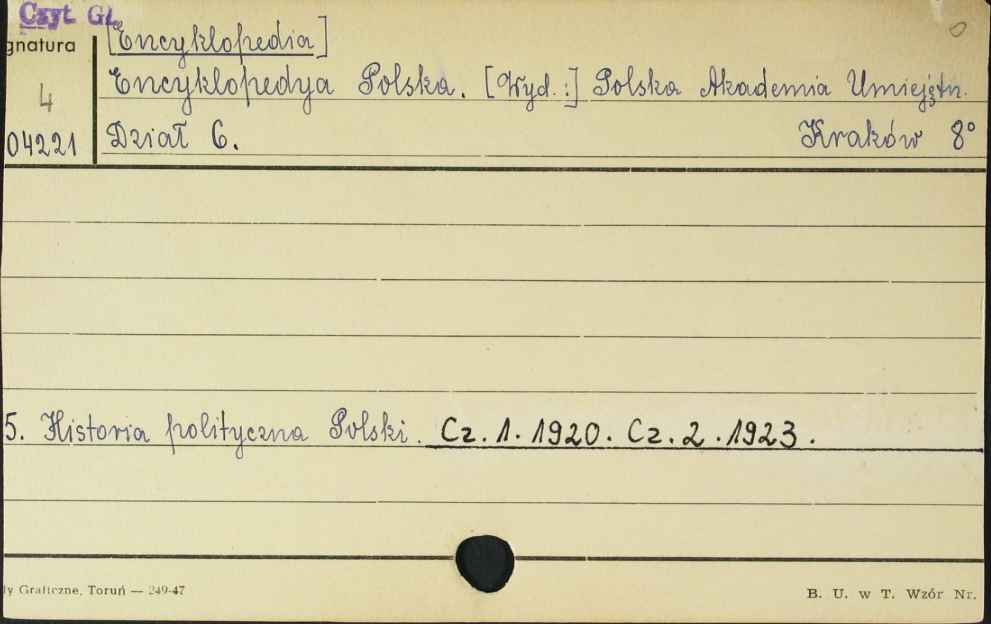 Czyt. Gł.
gnatura
[Encyklopedia]
4
Encyklopedya Polska. [Wyd.:] Polska Akademia Umiejętn.
04221
Dział 6. Kraków 8°
5. Historia polityczna Polski. Cz. 1. 1920. Cz. 2. 1923.
ły Graficzne, Toruń — 249-47
B. U. w T. Wzór Nr.